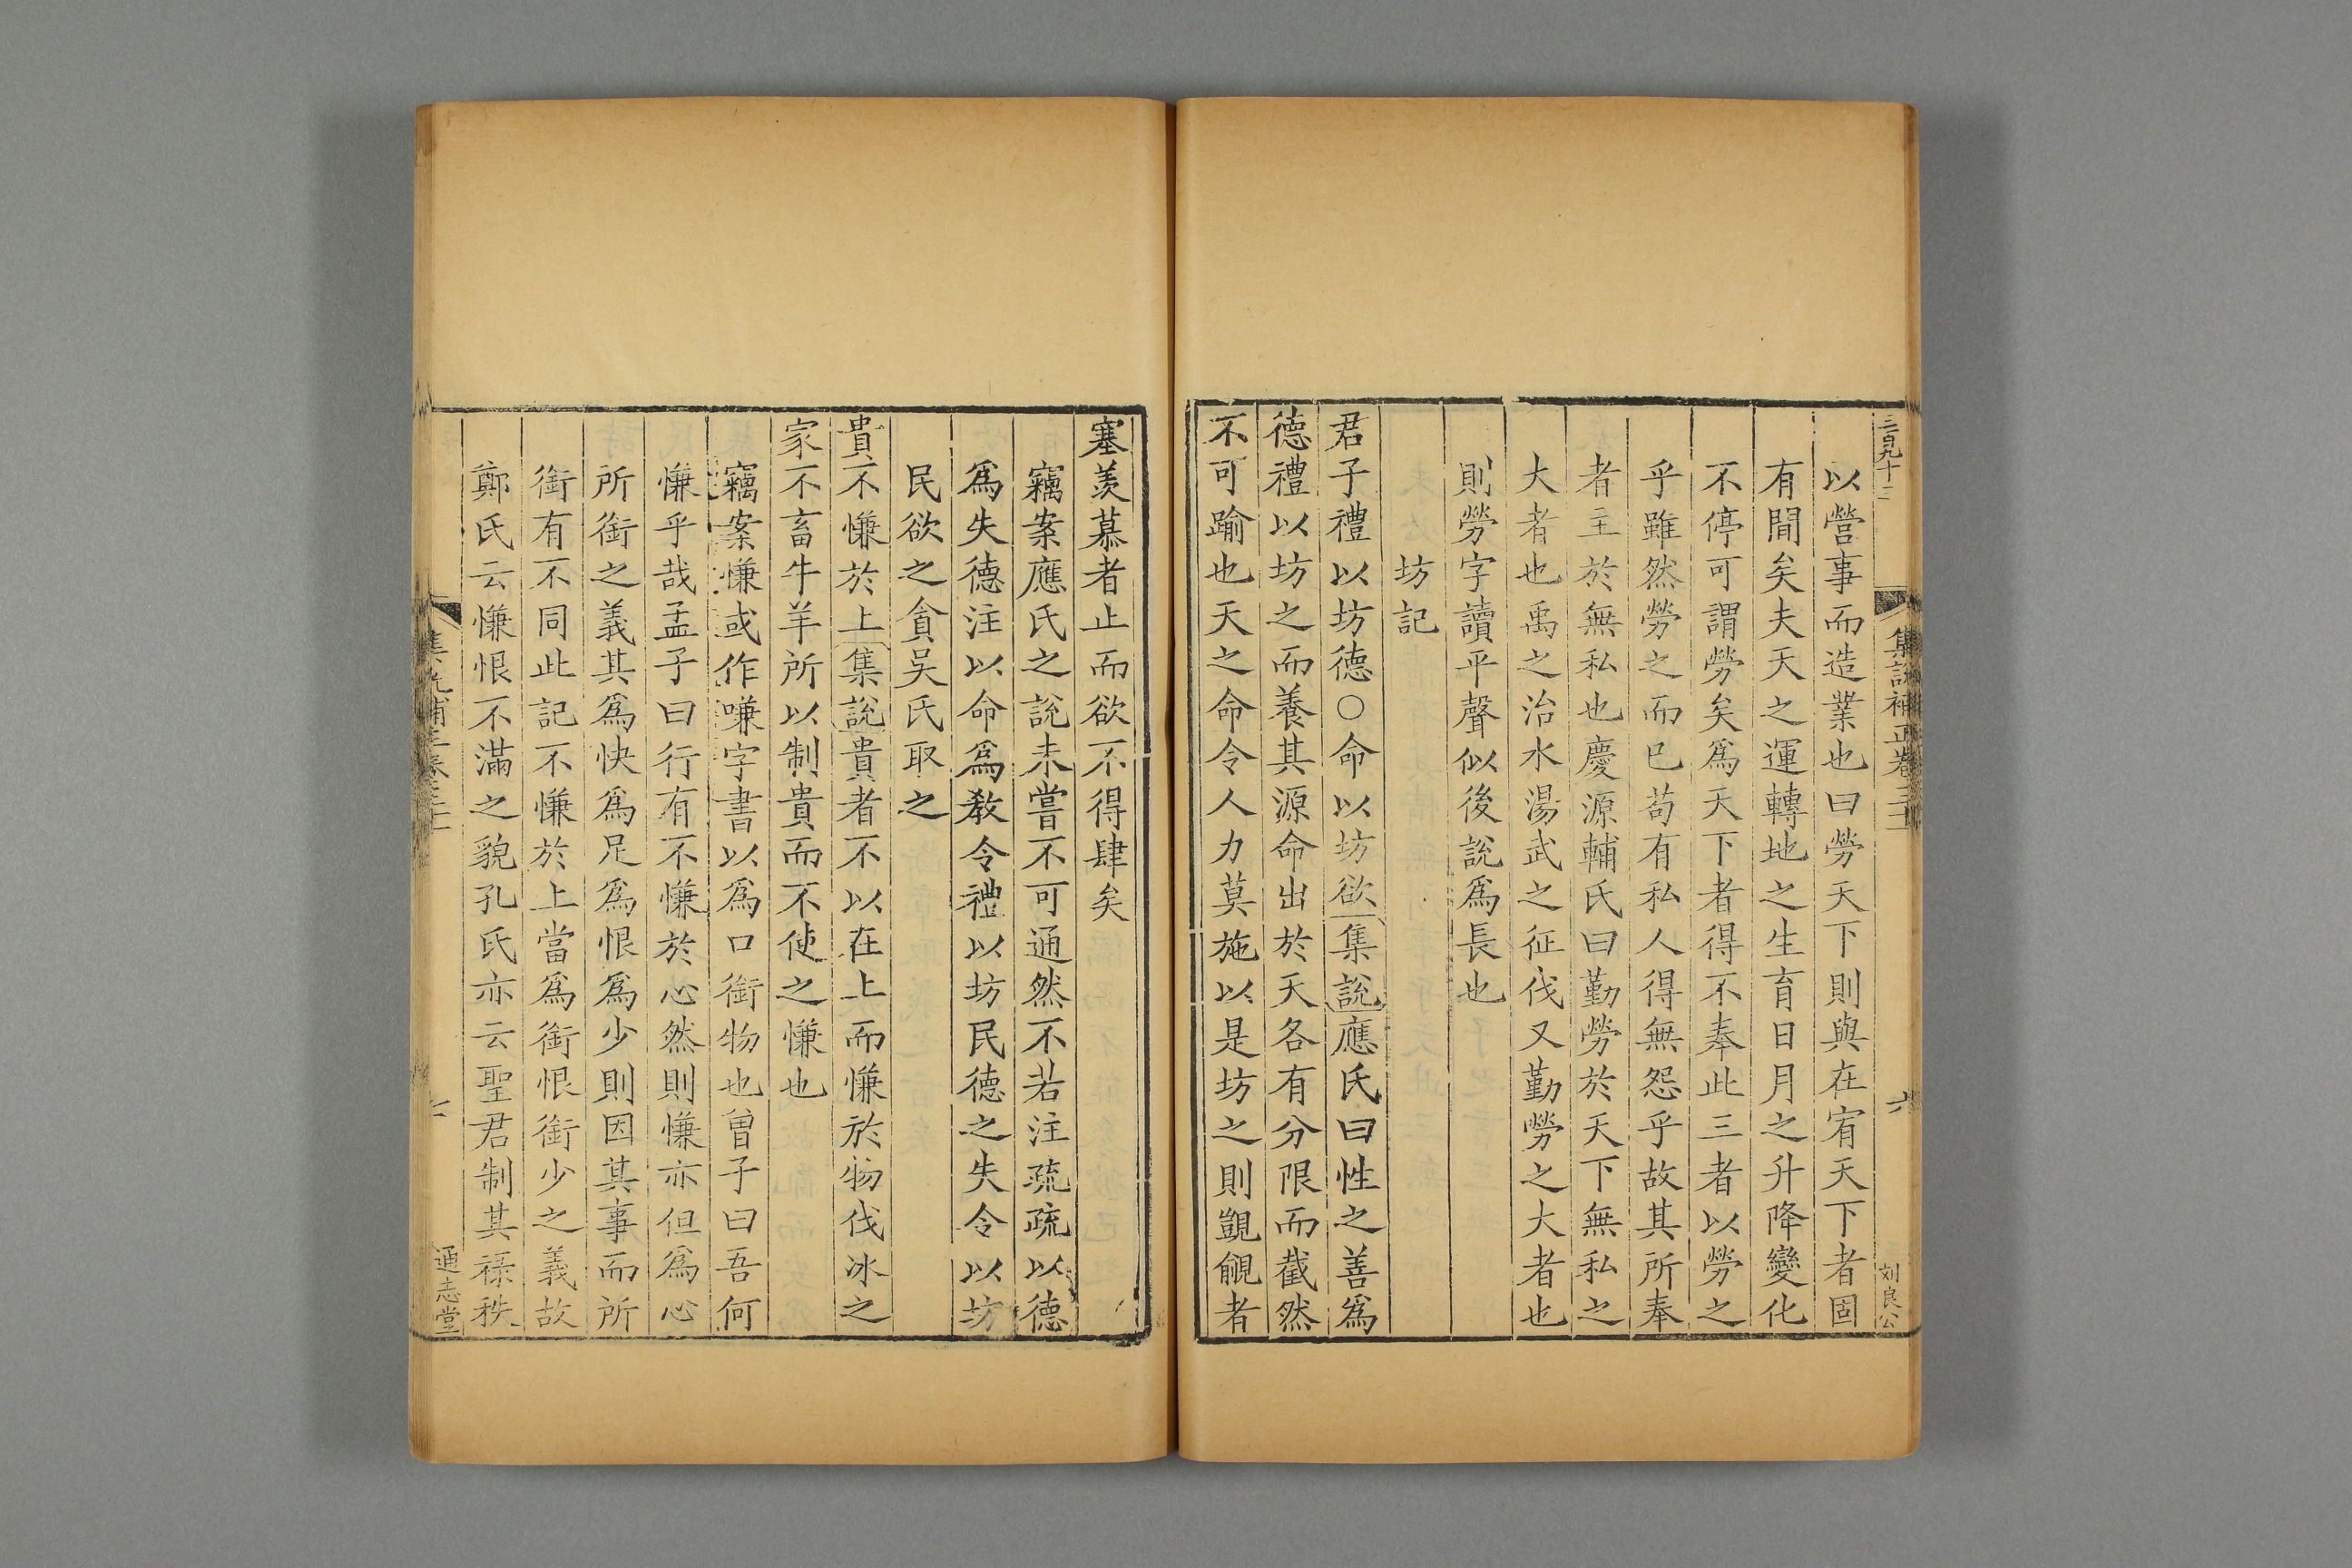 三百九十三
集說補正卷三十
六
刘良公
以營事而造業也曰勞天下則與在宥天下者固
有間矣夫天之運轉地之生育日月之升降變化
不停可謂勞矣爲天下者得不奉此三者以勞之
乎雖然勞之而已苟有私人得無怨乎故其所奉
者主於無私也慶源輔氏曰勤勞於天下無私之
大者也禹之治水湯武之征伐又勤勞之大者也
則勞字讀平聲似後說爲長也
坊記
君子禮以坊德○命以坊欲集說應氏曰性之善爲
德禮以坊之而養其源命出於天各有分限而截然
不可踰也天之命令人力莫施以是坊之則覬覦者
塞羨慕者止而欲不得肆矣
竊案應氏之說未嘗不可通然不若注疏疏以德
爲失德注以命爲教令禮以坊民德之失令以坊
民欲之貪吳氏取之
貴不慊於上集說貴者不以在上而慊於物伐冰之
家不畜牛羊所以制貴而不使之慊也
竊案慊或作嗛字書以爲口銜物也曾子曰吾何
慊乎哉孟子曰行有不慊於心然則慊亦但爲心
所銜之義其爲快爲足爲恨爲少則因其事而所
銜有不同此記不慊於上當爲銜恨銜少之義故
鄭氏云慊恨不滿之貌孔氏亦云聖君制其祿秩
通志堂